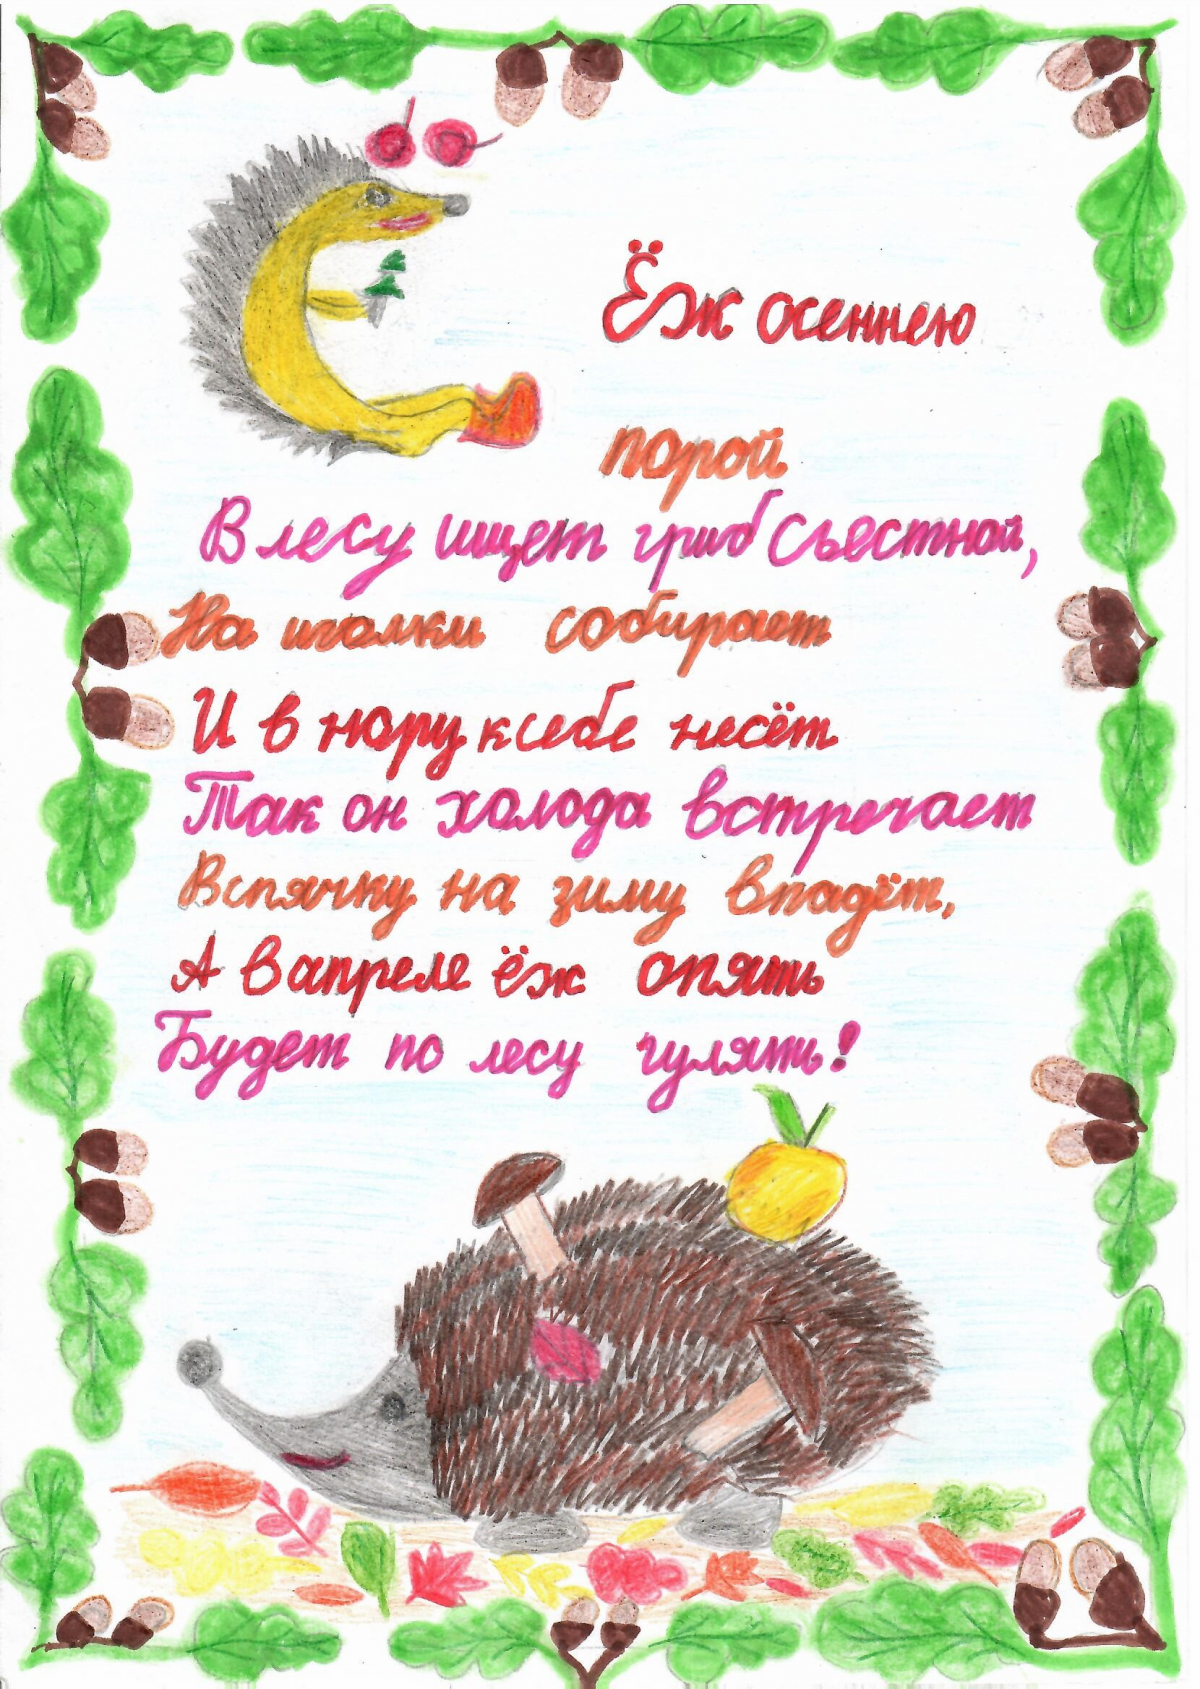 Ёж осеннею
порой
В лесу ищет гриб съестной,
На иголки собирает
И в нору к себе несёт
Так он холода встречает
Вспячку на зиму впадёт,
А в апреле ёж опять
Будет по лесу гулять!